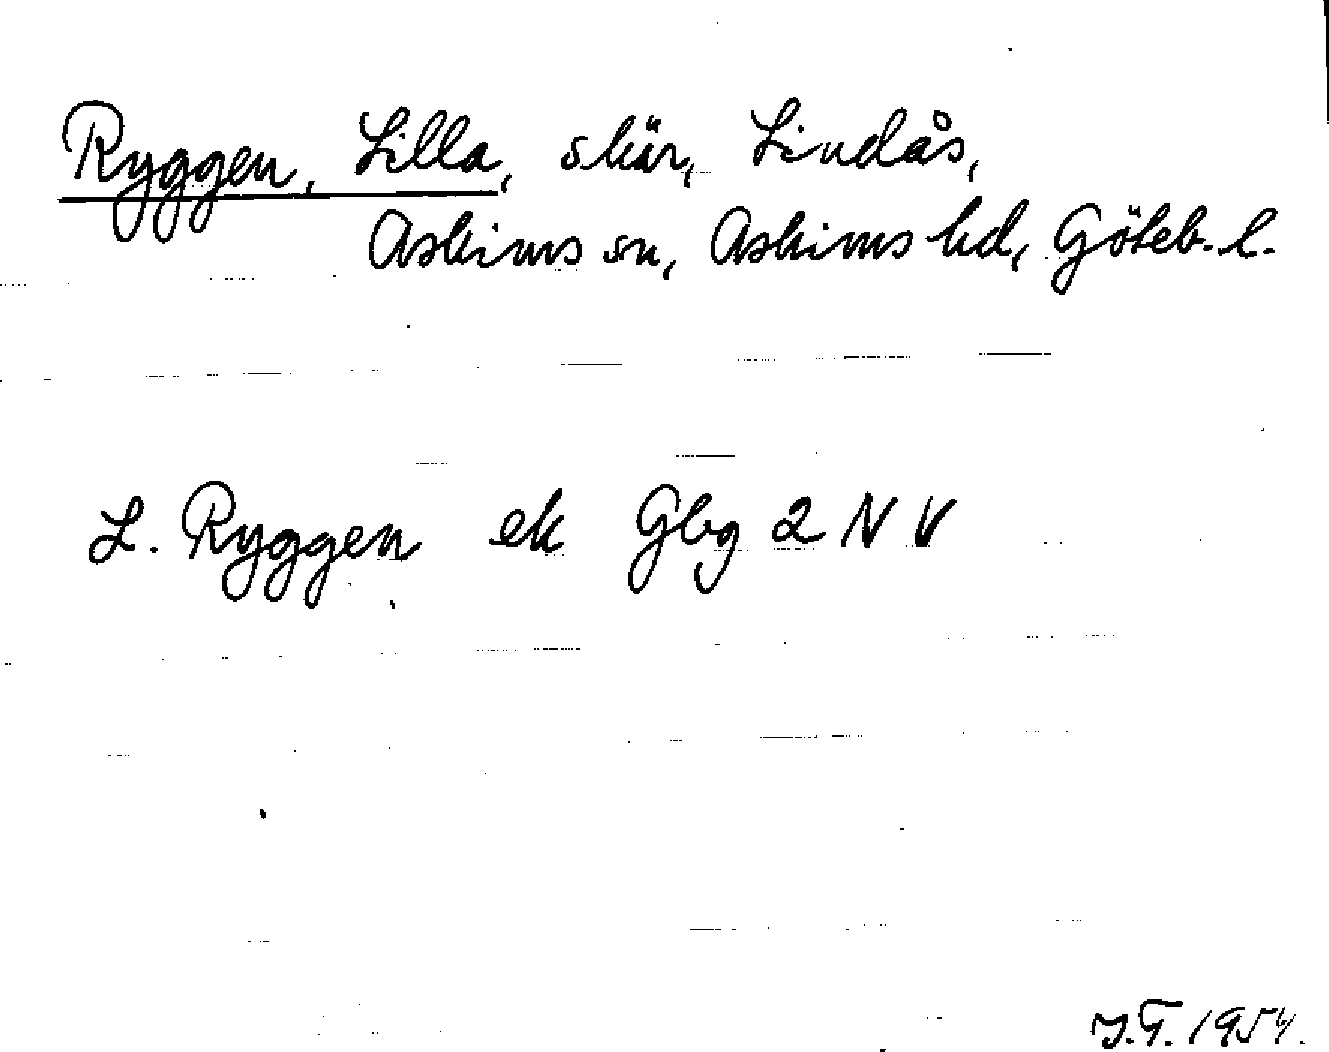 Ryggen, Lilla, skär, Lindås,
Askims sn, Askims hd, Göteb. l.
L. Ryggen ek Gbg 2 N V
J.T. 1954.